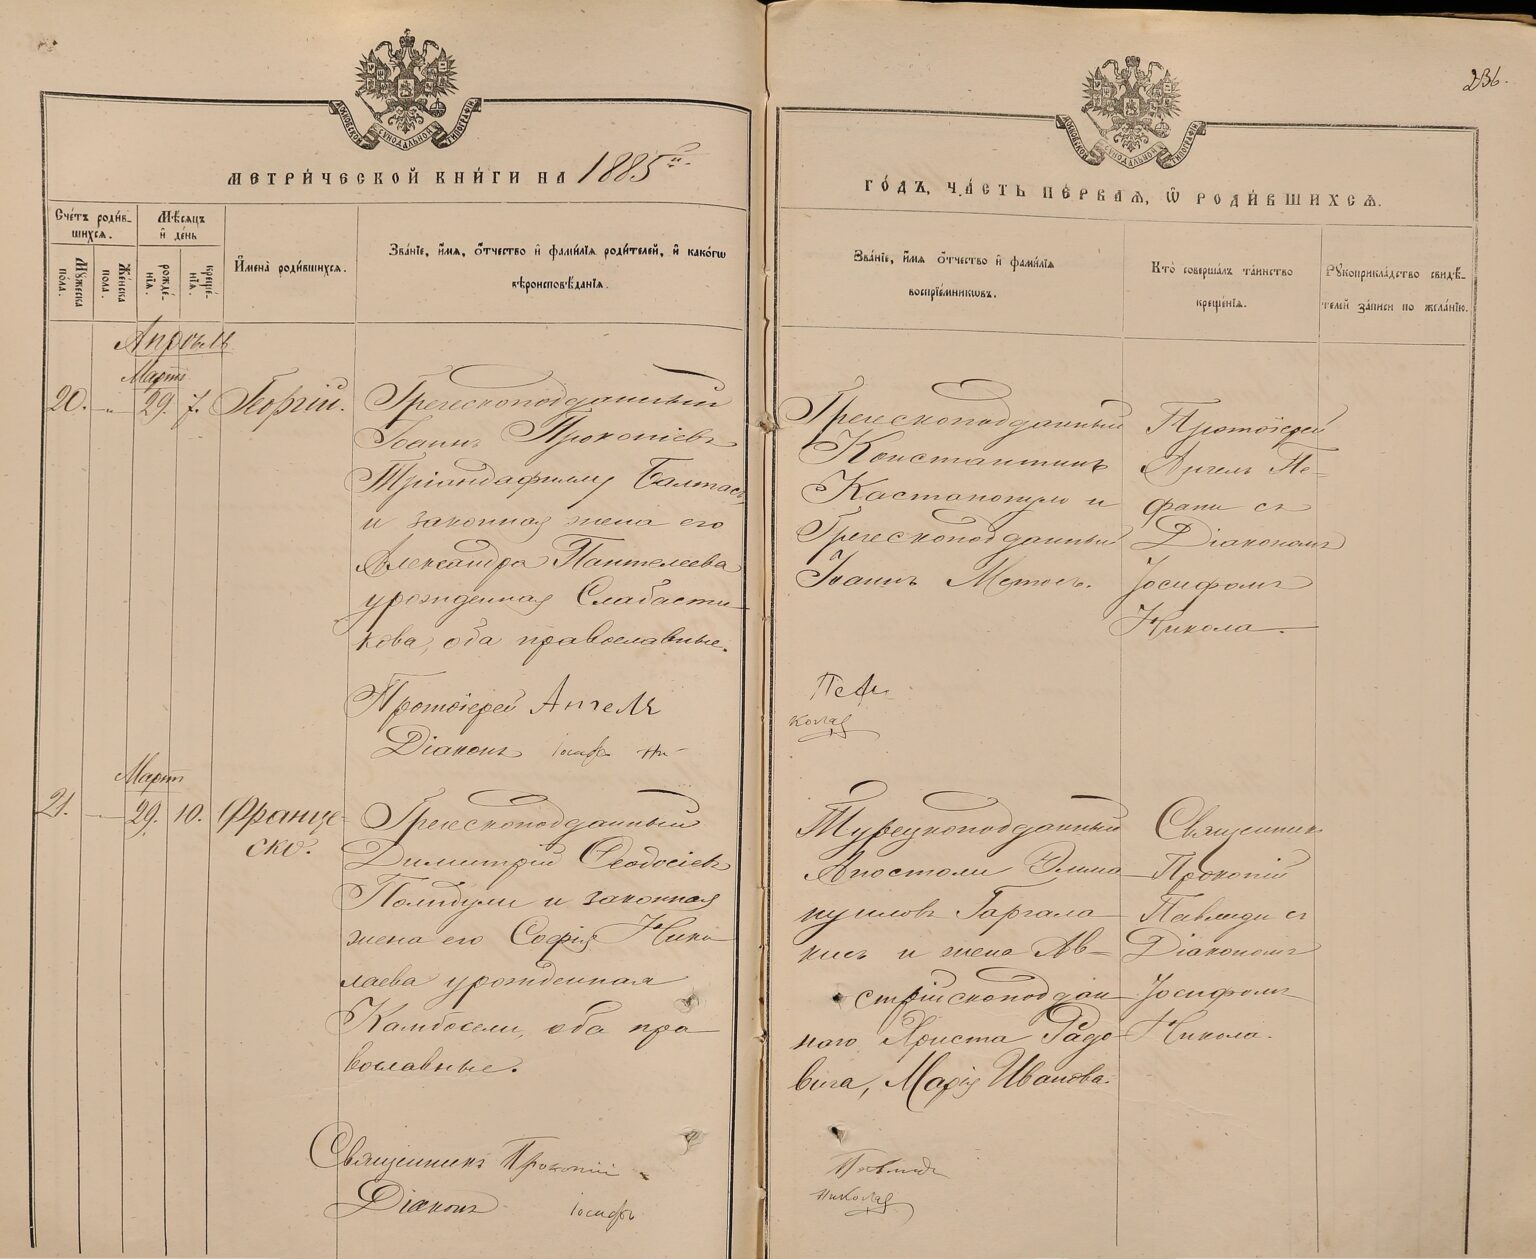 236.
МОСКОВСКОЙ СѴНОДАЛЬНОЙ ТИПОГРАФІИ
МОСКОВСКОЙ СѴНОДАЛЬНОЙ ТИПОГРАФІИ
МЕТРИ́ЧЕСКОЙ КНИ́ГИ НА 1885й
ГО́ДЪ, ЧА́СТЬ ПЕ́РВАѦ, Ѡ҆ РОДИ́ВШИХСѦ.
Сче́тъ роди́в-
шихсѧ.
Му́жеска
по́ла.
Же́нска
по́ла.
Мѣ́сѧцъ
и҆ де́нь
рожде́-
нїѧ.
креще́-
нїѧ.
И҆мена̀ роди́вшихсѧ.
Зва́нїе, и҆́мѧ, ѻ҆́тчество и҆ фами́лїѧ роди́телей, и҆ како́гѡ
вѣроисповѣ́данїѧ.
Зва́нїе, и҆́мѧ ѻ҆́тчество и҆ фами́лїѧ
воспрїе́мникѡвъ.
Кто̀ соверша́лъ та́инство
креще́нїѧ.
Рꙋкоприкла́дство свидѣ́-
телей за́писи по жела́нїю.
Апрѣль
Мартъ
20. — „ 29. 7. Георгій.
Греческоподданный
Іоаннъ Прокопіевъ
Тріандафиллу Балтасъ,
и законная жена его
Александра Пантелеева
урожденная Слабасти-
кова, оба православные.
Протоіерей Ангелъ
Діаконъ іосифъ Ни-
Греческоподданный
Константинъ
Кастанопуло и
Греческоподданный
Іоаннъ Метосъ.
Протоіерей
Ангелъ Пе-
фани съ
Діакономъ
Іосифомъ
Никола.
Пефа
колаѧ
Мартъ
21. — 29. 10. Франце-
ско.
Греческоподданный
Димитрій Ѳеодосіевъ
Полидули и законная
жена его Софія Нико
лаева урожденная
Камбосели, оба пра-
вославные.
Священникъ Прокопій
Діаконъ іосифъ
Турецкоподданный
Апостоли Эмма
нуиловъ Гаргала
кисъ и жена Ав-
стрійскоподдан-
наго Христа Радо-
вича, Марія Иванова.
Священникъ
Прокопій
Павлиди съ
Діакономъ
Іосифомъ
Никола.
Павлиди
николаѧ